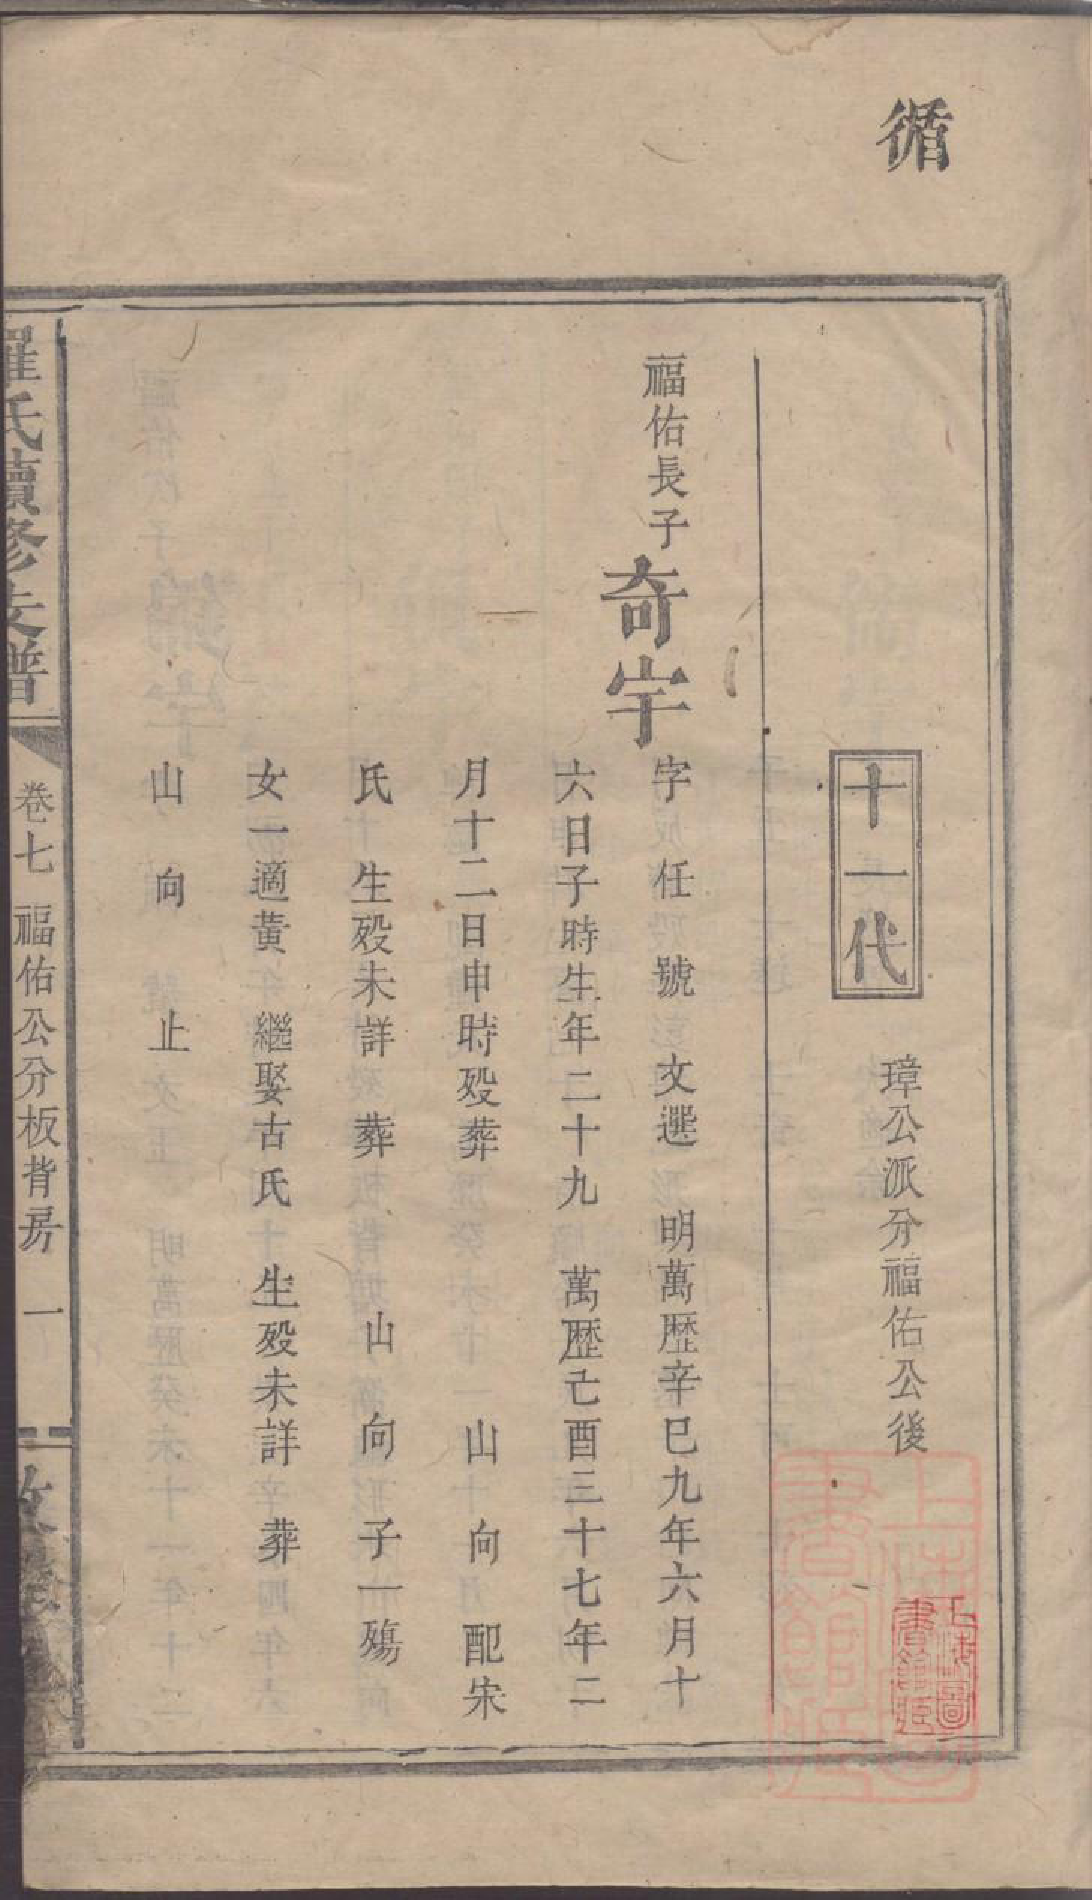 循
十一代
璋公派分福佑公後
福佑長子
奇宇
字 任 號 文選 明萬歷辛巳九年六月十
六日子時生年二十九 萬歷己酉三十七年二
月十二日申時殁葬 山 向 配宋
氏 生殁未詳 葬 山 向 子一殤
女一適黃 繼娶古氏 生殁未詳 葬
山 向 止
羅氏續修支譜
卷七 福佑公分板背房 一
上海圖書館藏